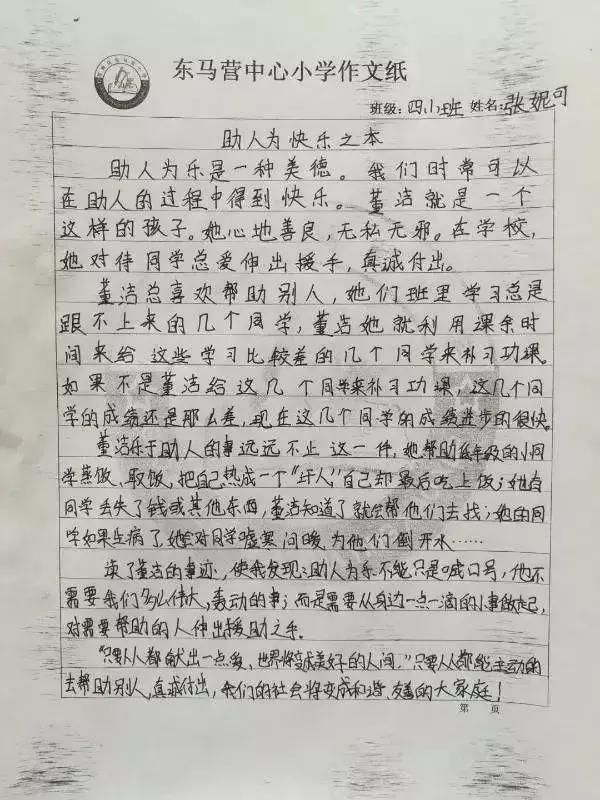 东马营中心小学作文纸
班级:四小班 姓名:张妮可
助人为快乐之本
助人为乐是一种美德。我们时常可以
在助人的过程中得到快乐。董洁就是一个
这样的孩子。她心地善良,无私无邪。在学校,
她对待同学总爱伸出援手,真诚付出。
董洁总喜欢帮助别人,她们班里学习总是
跟不上来的几个同学,董洁她就利用课余时
间来给这些学习比较差的几个同学来补习功课。
如果不是董洁给这几个同学来补习功课,这几个同
学的成绩还是那么差,现在这几个同学的成绩进步的很快。
董洁乐于助人的事远远不止这一件,她帮助低年级的小同
学蒸饭、取饭,把自己热成一个“汗人”自己却最后吃上饭;她有
同学丢失了钱或其他东西,董洁知道了就会帮他们去找;她的同
学如果生病了,她会对同学嘘寒问暖、为他们倒开水……
读了董洁的事迹,使我发现:助人为乐不能只是喊口号,也不
需要我们多么伟大,轰动的事;而是需要从身边一点一滴的小事做起,
对需要帮助的人伸出援助之手。
“只要人人都献出一点爱、世界将变成美好的人间,”只要人人都能主动的
去帮助别人,真诚付出,我们的社会将变成和谐、友善的大家庭!
第 页